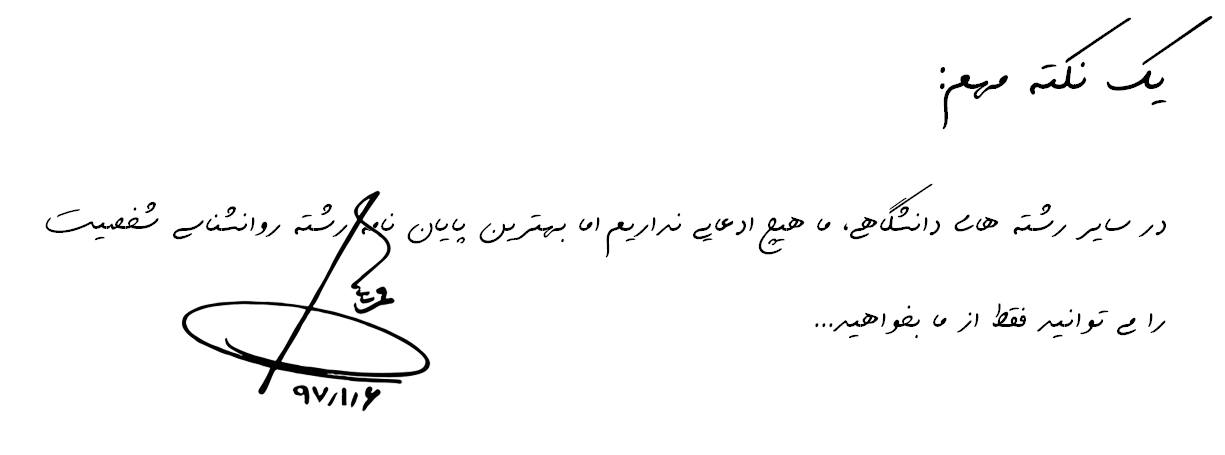 یک نکته مهم:
در سایر رشته های دانشگاهی، ما هیچ ادعایی نداریم اما بهترین پایان نامه رشته روانشناسی شخصیت
را می توانید فقط از ما بخواهید...
۹۷/۱/۶